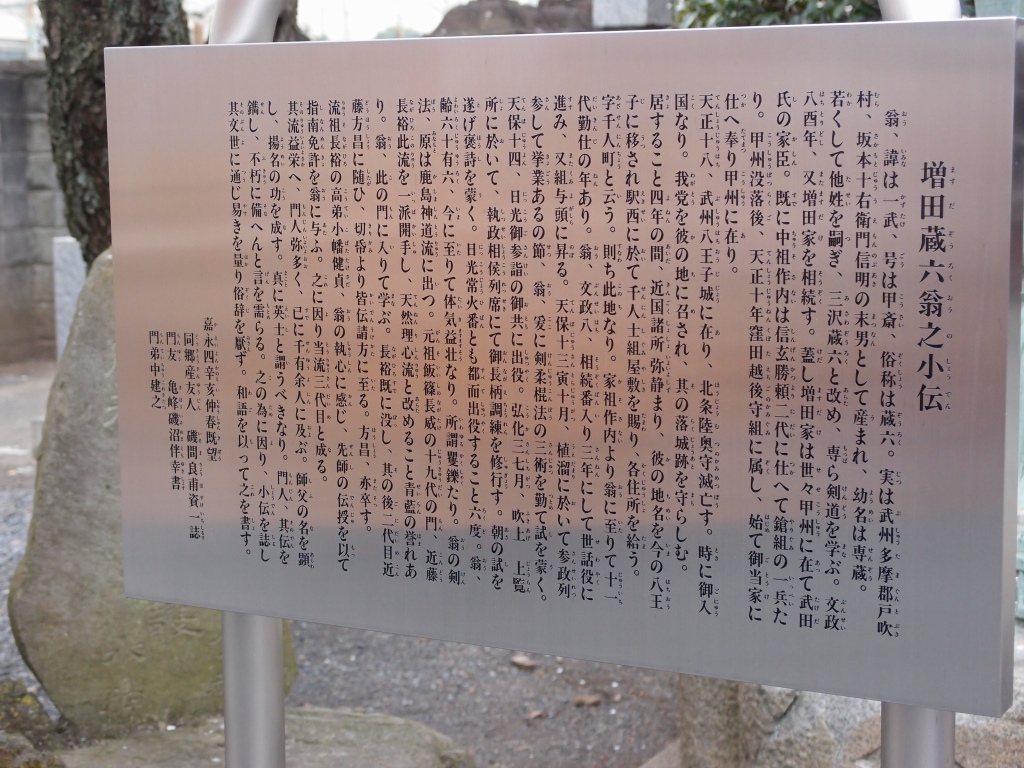 増田蔵六翁之小伝
翁、諱は一武、号は甲斎、俗称は蔵六。実は武州多摩郡戸吹
村、坂本十右衛門信明の末男として産まれ、幼名は専蔵。
若くして他姓を嗣ぎ、三沢蔵六と改め、専ら剣道を学ぶ。文政
八酉年、又増田家を相続す。蓋し増田家は世々甲州に在て武田
氏の家臣。既に中祖作内は信玄勝頼二代に仕へて鎗組の一兵た
り。甲州没落後、天正十年窪田越後守組に属し、始て御当家に
仕へ奉り甲州に在り。
天正十八、武州八王子城に在り、北条陸奥守滅亡す。時に御入
国なり。我党を彼の地に召され、其の落城跡を守らしむ。
居すること四年の間、近国諸所弥静まり、彼の地名を今の八王
子に移され駅西に於て千人士組屋敷を賜り、各住所を給う。
字千人町と云う。則ち此地なり。家祖作内より翁に至りて十一
代勤仕の年あり。翁、文政八、相続番入り三年にして世話役に
進み、又組与頭に昇る。天保十三寅十月、植溜に於いて参政列
参して挙業あるの節、翁、爰に剣柔棍法の三術を勤て試を蒙く。
天保十四、日光御参詣の御共に出役。弘化三七月、吹上 上覧
所に於いて、執政相侯列席にて御長柄調練を修行す。朝の試を
遂げ褒詩を蒙く。日光常火番とも都而出役すること六度。翁、
齢六十有六、今に至りて体気益壮なり。所謂矍鑠たり。翁の剣
法、原は鹿島神道流に出つ。元祖飯篠長威の十九代の門、近藤
長裕此流を一派開手し、天然理心流と改めること青藍の誉れあ
り。翁、此の門に入りて学ぶ。長裕既に没し、其の後二代目近
藤方昌に随ひ、切昏より皆伝請方に至る。方昌、亦卒す。
流祖長裕の高弟小幡健貞、翁の執心に感じ、先師の伝授を以て
指南免許を翁に与ふ。之に因り当流三代目と成る。
其流益栄へ、門人弥多く、已に千有余人に及ぶ。師父の名を顕
し、揚名の功を成す。真に英士と謂うべきなり。門人、其伝を
鐫し、不朽に備へんと言を需らる。之の為に因り、小伝を誌し
其文世に通じ易きを量り俗辞を厭ず。和語を以って之を書す。
嘉永四辛亥仲春既望
同郷産友人 磯間良甫資一誌
門友 亀峰磯沼伴幸書
門弟中建之